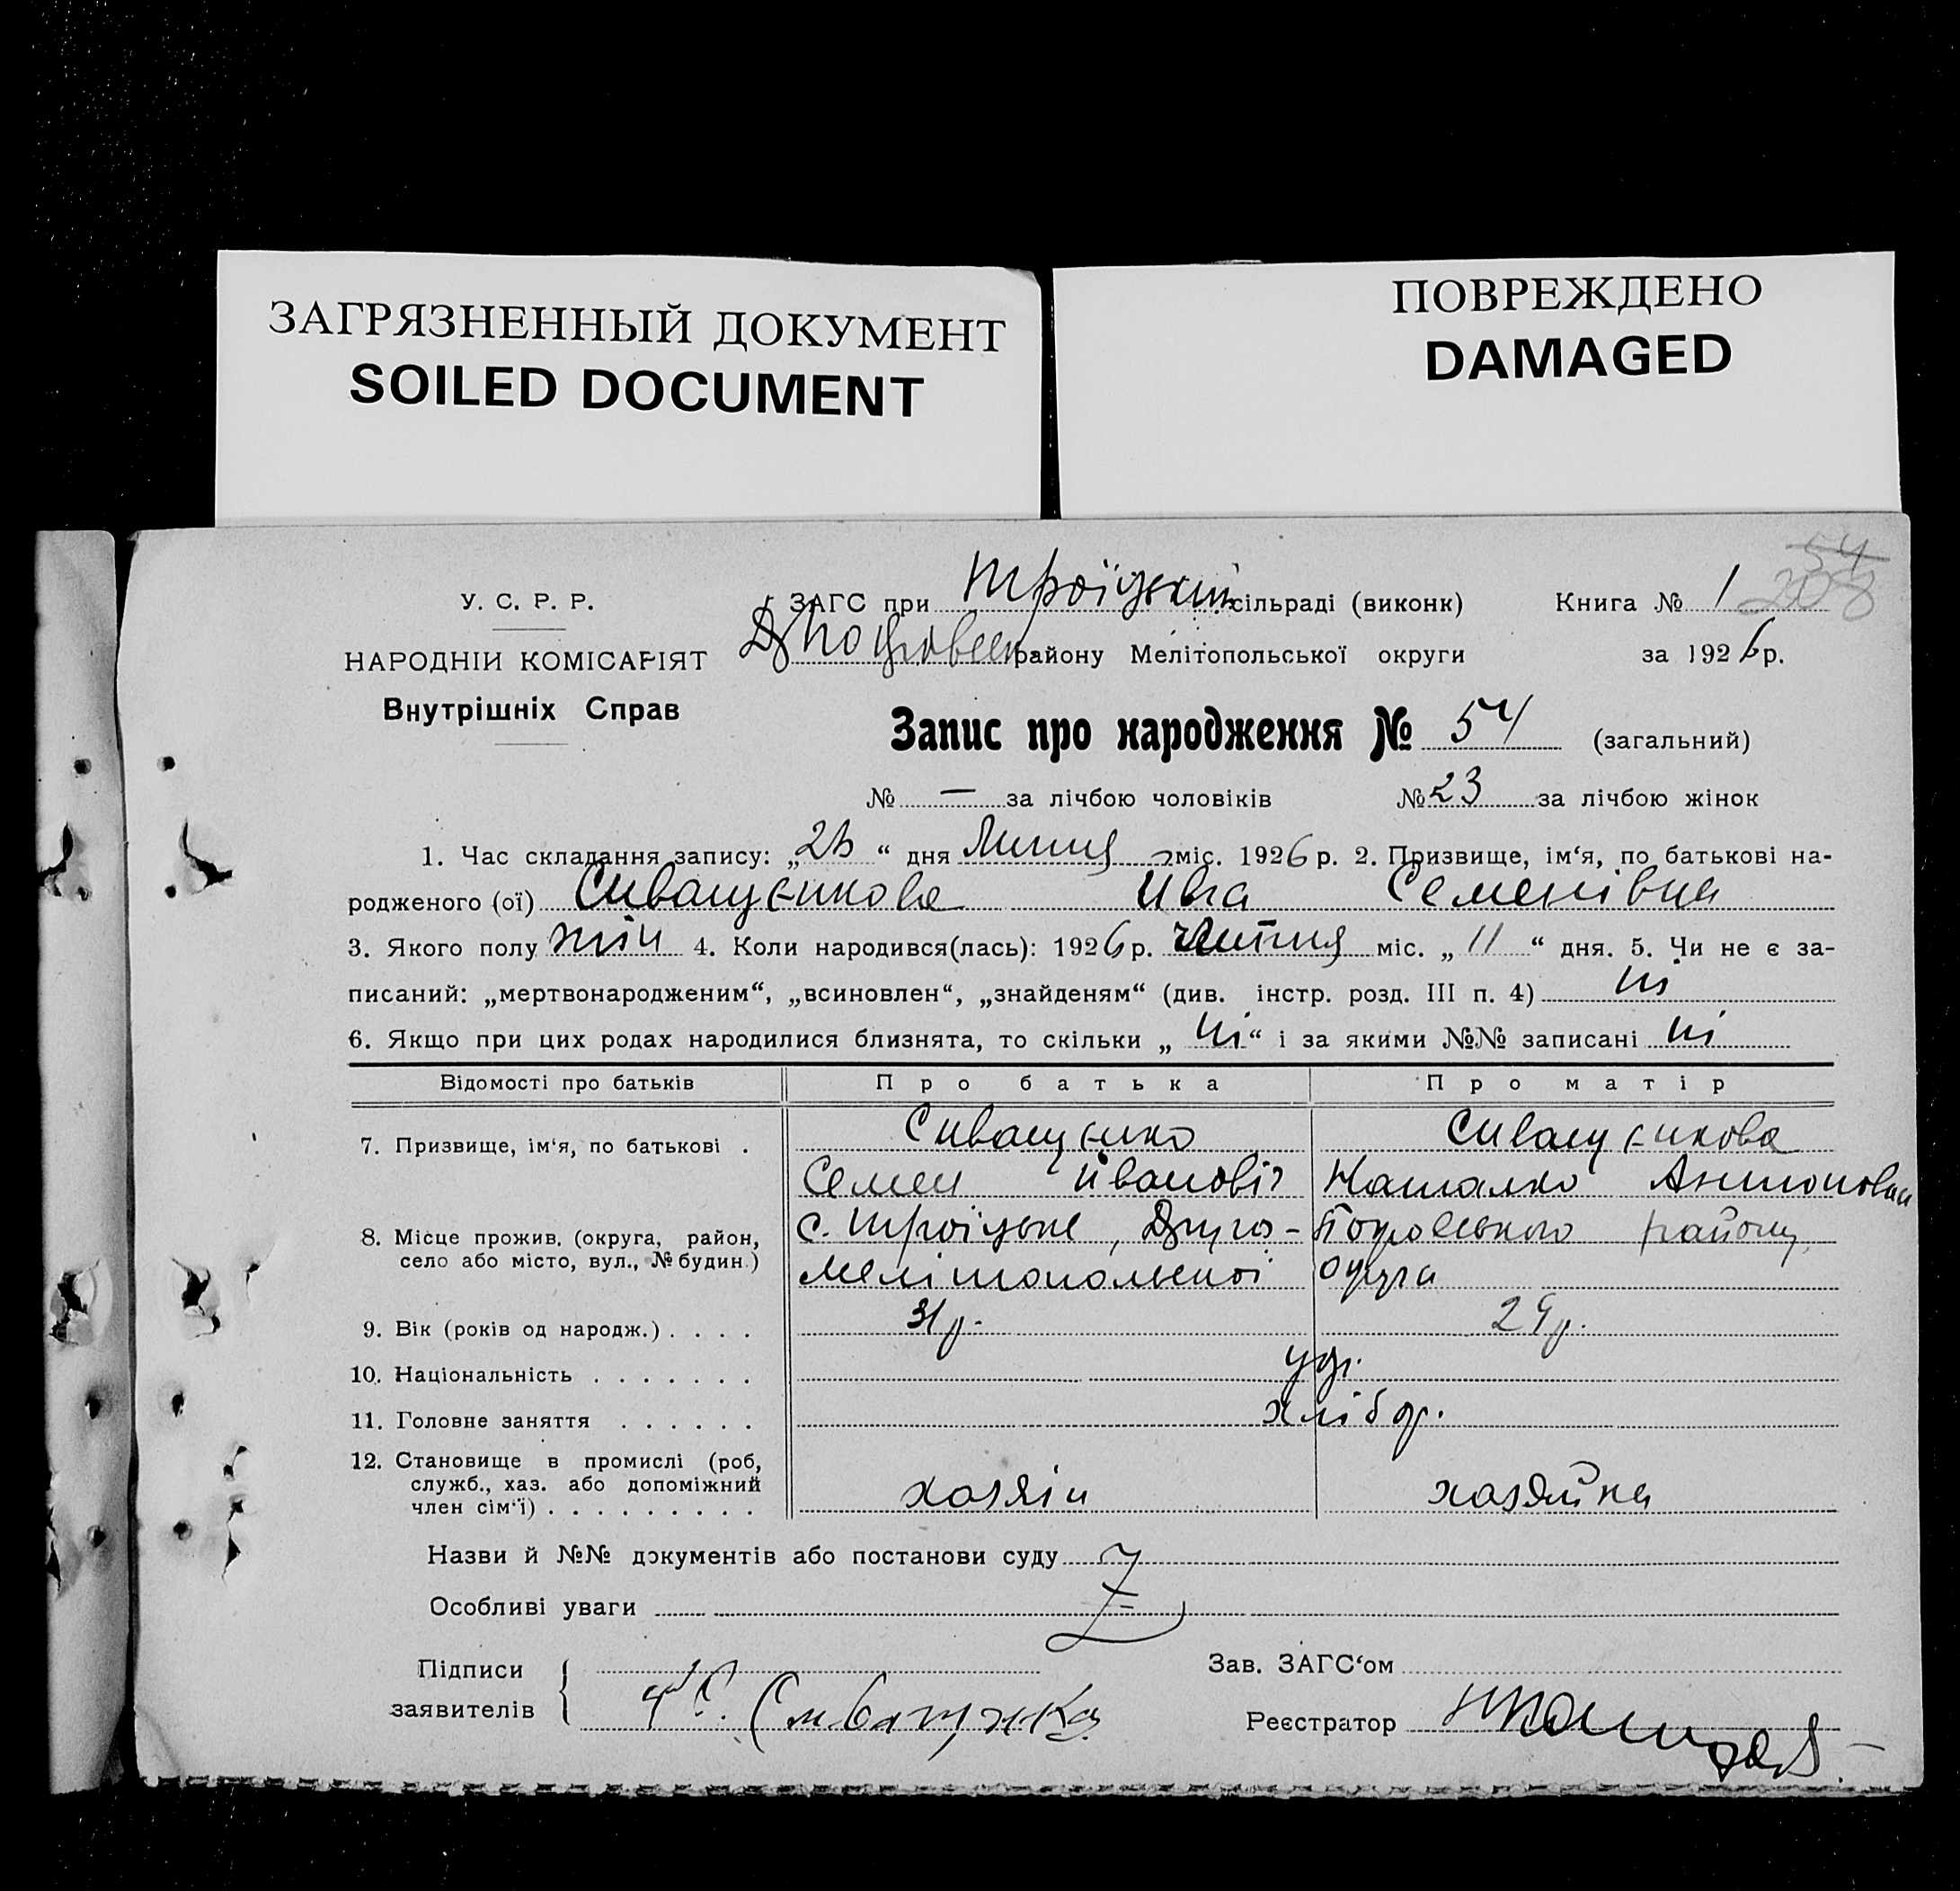 ЗАГРЯЗНЕННЫЙ ДОКУМЕНТ
SOILED DOCUMENT
ПОВРЕЖДЕНО
DAMAGED
54
208
У. С. Р. Р.
ЗАГС при Троїцькій сільраді (виконк) Книга № 1
НАРОДНІЙ КОМІСАРІЯТ
району Мелітопольської округи за 1926 р.
Внутрішніх Справ
Запис про народження № 54 (загальний)
№ — за лічбою чоловіків № 23 за лічбою жінок
1. Час складання запису: „ “ дня Липня міс. 1926 р. 2. Призвище, ім‘я, по батькові на-
родженого (ої) Сиващенкова Ивга Семенівна
3. Якого полу жін 4. Коли народився(лась): 1926 р. Липня міс. „ 11 “ дня. 5. Чи не є за-
писаний: „мертвонародженим“, „всиновлен“, „знайденям“ (див. інстр. розд. III п. 4) ні
6. Якщо при цих родах народилися близнята, то скільки „ ні “ і за якими №№ записані ні
Відомості про батьків Про батька Про матір
7. Призвище, ім‘я, по батькові . Сиващенко Сиващенкова
Семен Иванові Наталко Антоновна
8. Місце прожив. (округа, район, село або місто, вул., № будин.) с. Троїцьке, Друго- Покровського району,
Мелітопольскої округа
9. Вік (років од народж.) . . . . 31 р. 29 р.
10. Національність . . . . . . . укр.
11. Головне заняття . . . . . . хлібор.
12. Становище в промислі (роб,
служб., хаз. або допоміжний
член сім‘ї) . . . . . . . . . хозяін хозяйка
Назви й №№ документів або постанови суду
Особливі уваги
Підписи
заявителів
Зав. ЗАГС‘ом
Реєстратор